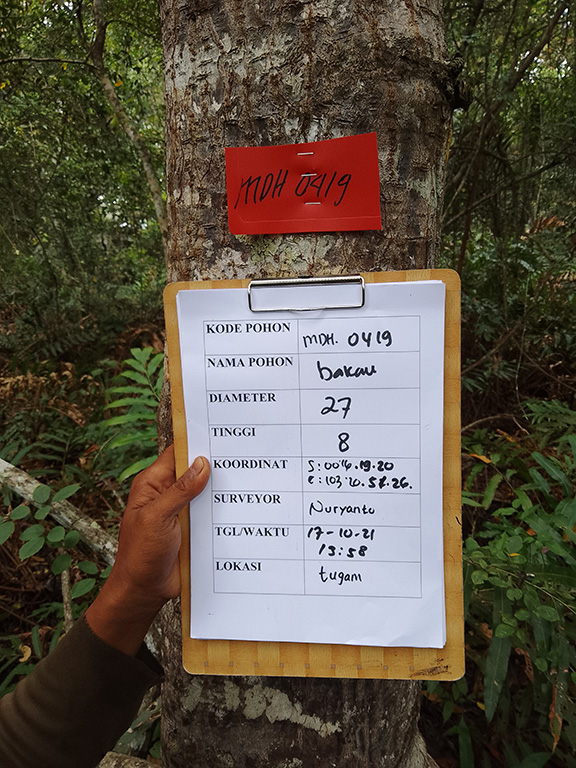 MDH 0419
KODE POHON MDH. 0419
NAMA POHON bakau
DIAMETER 27
TINGGI 8
KOORDINAT S:
E:
SURVEYOR Nuryanto
TGL/WAKTU 17-10-21
13:58
LOKASI tugam